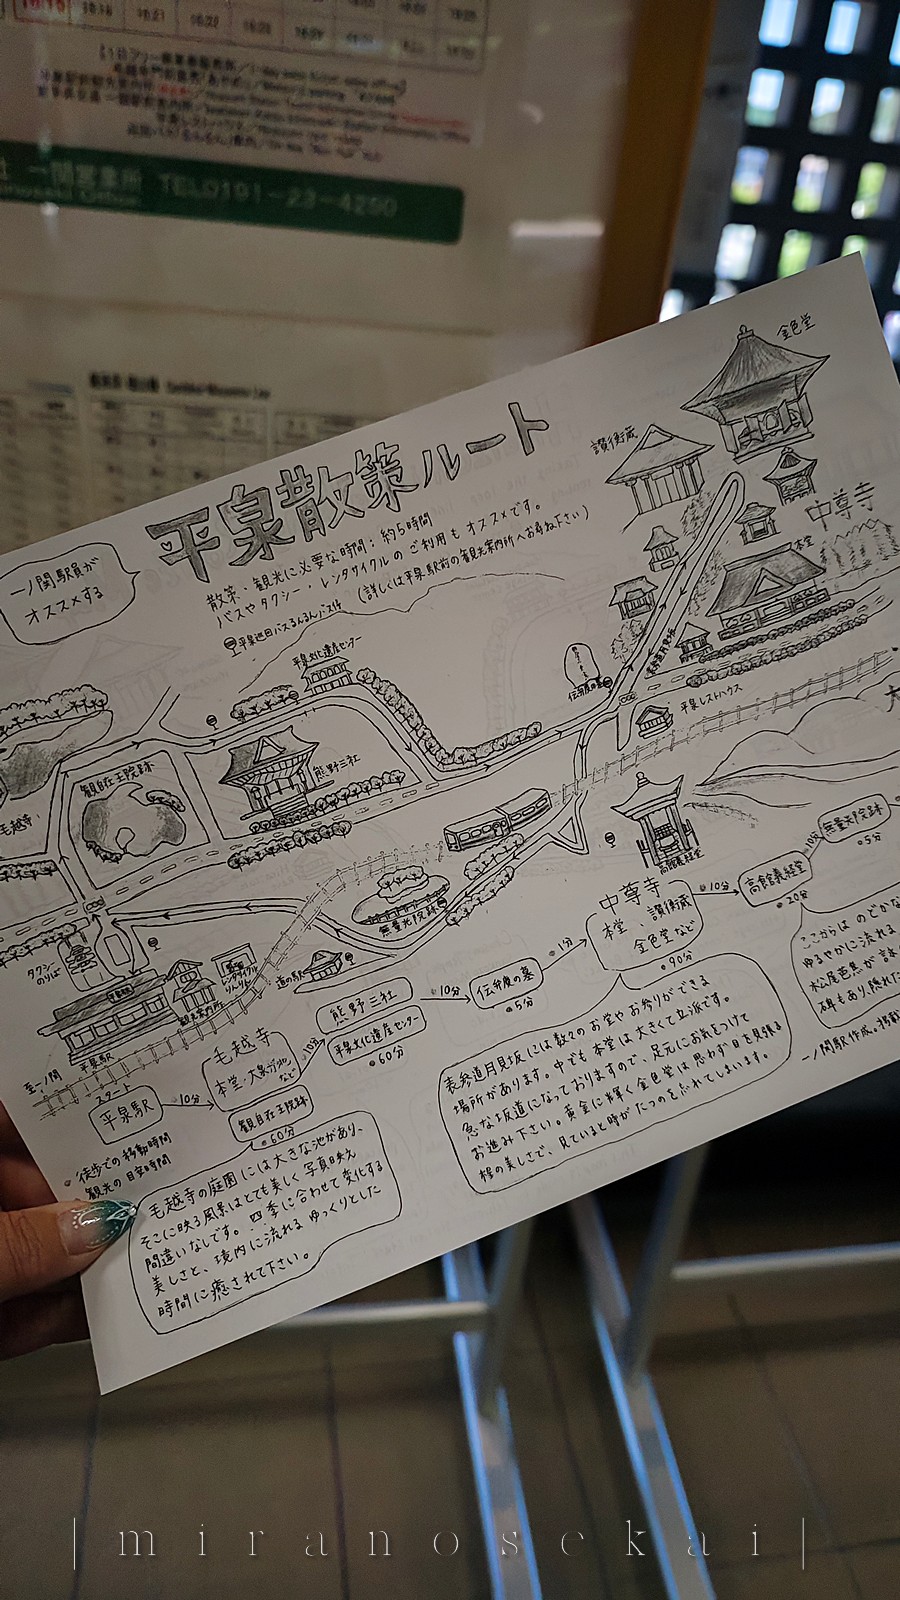 10:18 10:21
一関営業所 TEL0191-23-4250
一ノ関駅員が
オススメする
平泉散策ルート
散策・観光に必要な時間：約5時間
バスやタクシー・レンタサイクルのご利用もオススメです。
(詳しくは平泉駅前の観光案内所へお尋ね下さい)
平泉巡回バスるんるんバス停
金色堂
讃衡蔵
中尊寺
本堂
表参道月見坂
平泉文化遺産センター
伝弁慶の墓
平泉レストハウス
熊野三社
観自在王院跡
毛越寺
高館義経堂
無量光院跡
道の駅
タクシー
のりば
レンタサイクル
りんりん
観光案内所
平泉駅
至一ノ関
スタート
平泉駅
10分
毛越寺
本堂・大泉が池
など
観自在王院跡
60分
10分
熊野三社
平泉文化遺産センター
60分
10分
伝弁慶の墓
5分
1分
中尊寺
本堂、讃衡蔵
金色堂など
90分
10分
高館義経堂
20分
10分
無量光院跡
5分
徒歩での移動時間
観光の目安時間
毛越寺の庭園には大きな池があり、
そこに映る風景はとても美しく写真映え
間違いなしです。四季に合わせて変化する
美しさと、境内に流れるゆっくりとした
時間に癒されて下さい。
表参道月見坂には数々のお堂やお参りができる
場所があります。中でも本堂は大きくて立派です。
急な坂道になっておりますので、足元にお気をつけて
お進み下さい。黄金に輝く金色堂は思わず目を見張る
程の美しさで、見ていると時がたつのを忘れてしまいます。
ここからはのどかな
ゆるやかに流れる
松尾芭蕉が詠
碑もあり、隠れた
一ノ関駅作成。移動
|miranosekai|